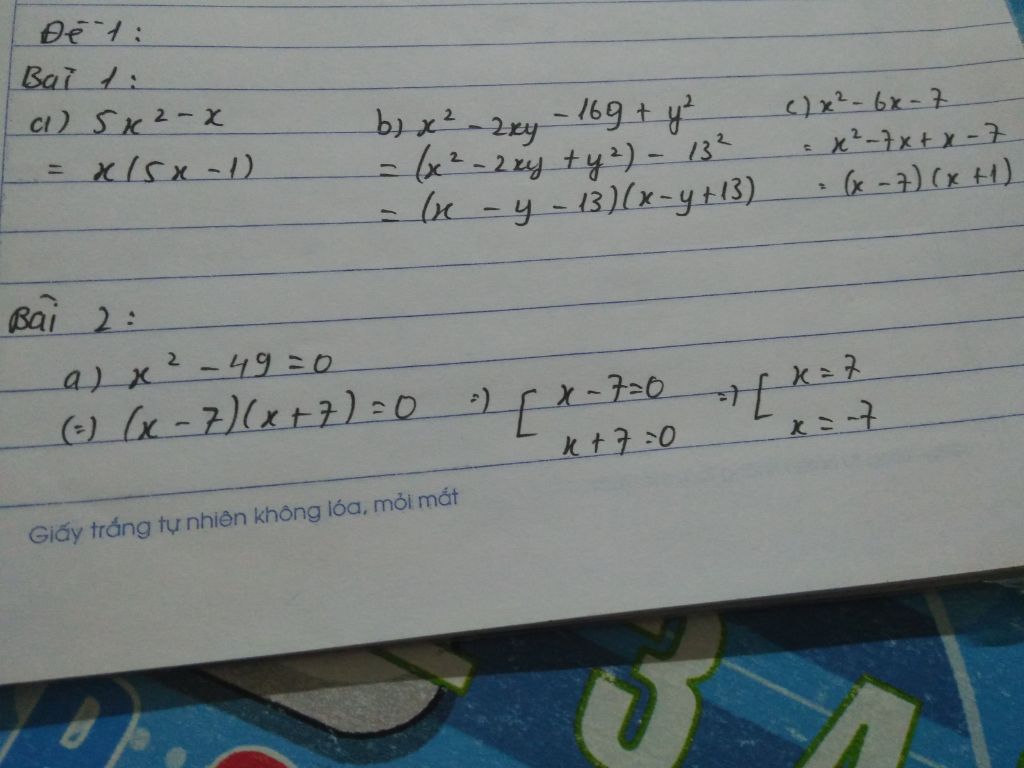 Đề 1:
Bài 1:
a) 5x² - x
= x(5x - 1)
b) x² - 2xy - 169 + y²
= (x² - 2xy + y²) - 13²
= (x - y - 13)(x - y + 13)
c) x² - 6x - 7
= x² - 7x + x - 7
= (x - 7)(x + 1)
Bài 2:
a) x² - 49 = 0
(=) (x - 7)(x + 7) = 0 =) [ x - 7 = 0 =) [ x = 7
x + 7 = 0 x = -7
Giấy trắng tự nhiên không lóa, mỏi mắt
3